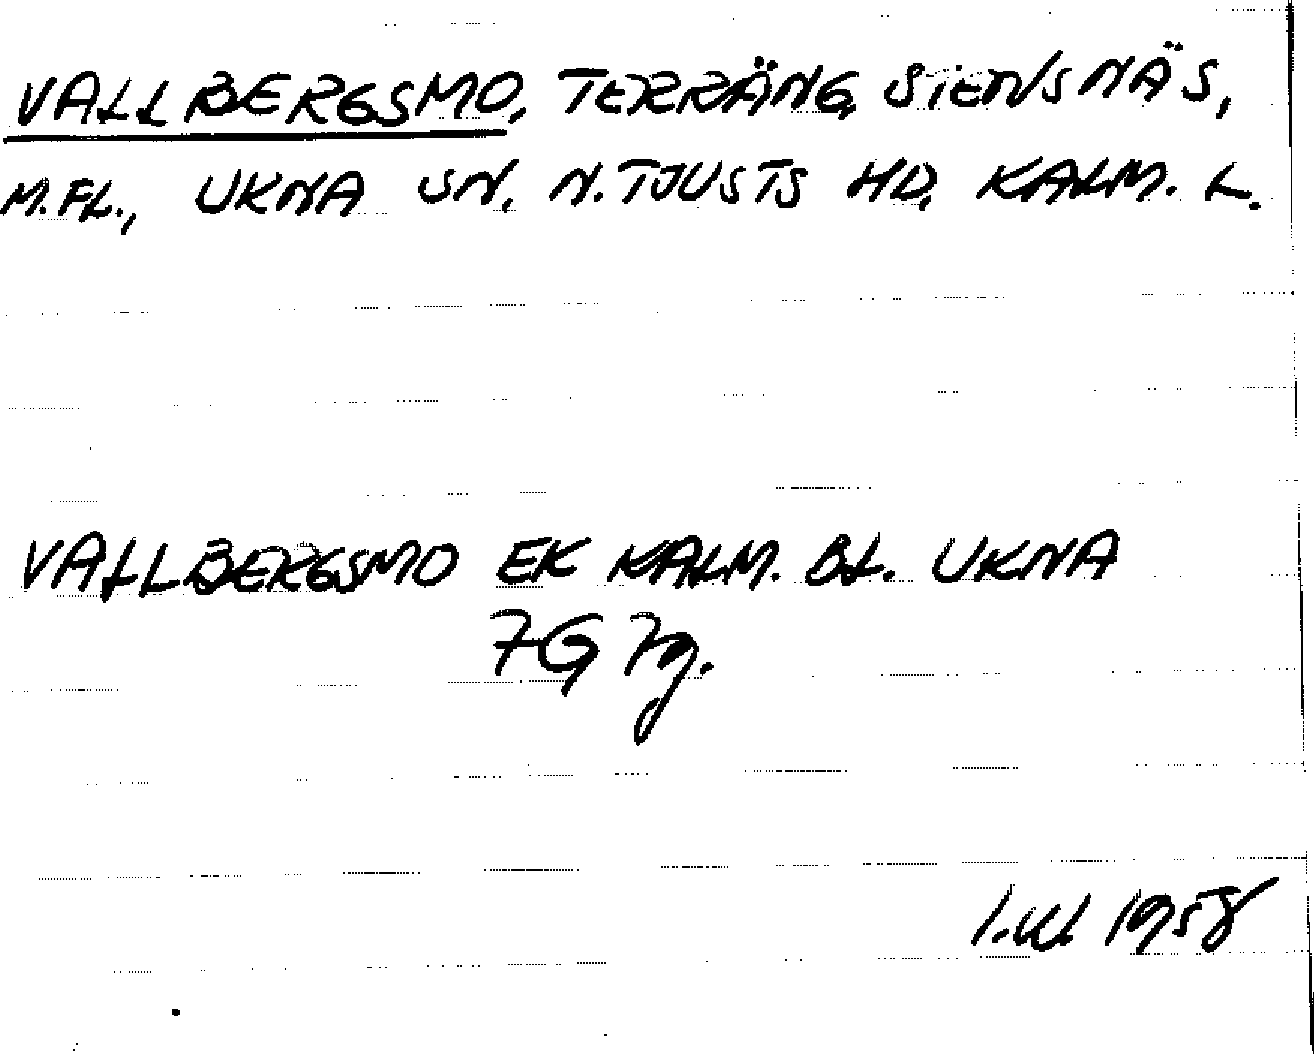 VALLBERGSMO, TERRÄNG, STENSNÄS,
M.FL., UKNA SN, N. TJUSTS HD, KALM. L.
VALLBERGSMO EK KALM. BL. UKNA
7G 7g.
1958